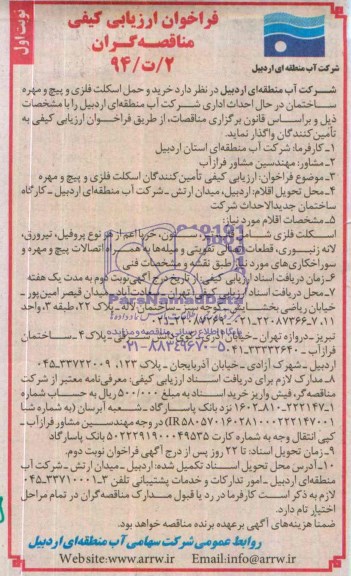 نوبت اول
فراخوان ارزیابی کیفی
مناقصه‌گران
۹۴/ت/۲
شرکت آب منطقه‌ای اردبیل
شرکت آب منطقه‌ای اردبیل در نظر دارد خرید و حمل اسکلت فلزی و پیچ و مهره
ساختمان در حال احداث اداری شرکت آب منطقه‌ای اردبیل را با مشخصات
ذیل و براساس قانون برگزاری مناقصات، از طریق فراخوان ارزیابی کیفی به
تأمین‌کنندگان واگذار نماید.
۱-کارفرما: شرکت آب منطقه‌ای استان اردبیل
۲-مشاور: مهندسین مشاور فرازآب
۳-موضوع فراخوان: ارزیابی کیفی تأمین‌کنندگان اسکلت فلزی و پیچ و مهره
۴-محل تحویل اقلام: اردبیل، میدان ارتش - شرکت آب منطقه‌ای اردبیل - کارگاه
ساختمان جدیدالاحداث شرکت
۵-مشخصات اقلام مورد نیاز:
اسکلت فلزی شامل ستون، خرپا اعم از هر نوع پروفیل، تیرورق،
لانه زنبوری، قطعات تقویتی و میله‌ها به همراه اتصالات پیچ و مهره و
سوراخکاری‌های مورد نیاز طبق نقشه و مشخصات فنی
۶-زمان دریافت اسناد ارزیابی کیفی: از تاریخ درج آگهی نوبت دوم به مدت یک هفته
۷-محل دریافت اسناد ارزیابی کیفی: تهران - سعادت‌آباد - میدان قیصر امین‌پور -
خیابان ریاضی بخشایش - پلاک ۲۲، طبقه ۳، واحد
۷
تبریز - دروازه تهران - خیابان پلاک ۴ - ساختمان
فرازآب - ۳۳۳۳۲۶۴۰-۰۴۱
اردبیل - شهرک آزادی - خیابان آذربایجان - پلاک ۱۲۳، ۳۳۷۲۲۰۰۹-۰۴۵
۸-مدارک لازم برای دریافت اسناد ارزیابی کیفی: معرفی‌نامه معتبر از شرکت
مناقصه‌گر، فیش واریز خرید اسناد به مبلغ ۵۰۰/۰۰۰ ریال به حساب شماره
۱-۲۲۲۱۴۷-۸۱۰-۱۶۰۲ نزد بانک پاسارگاد - شعبه آبرسان (به شماره شبا
در وجه مهندسین مشاور فرازآب -
کپی انتقال وجه به شماره کارت ۵۰۲۲۲۹۱۹۰۰۰۴۹۵۳۵ بانک پاسارگاد
۹-زمان تحویل اسناد: تا ۲۲ روز پس از درج آگهی فراخوان نوبت دوم.
۱۰-آدرس محل تحویل اسناد تکمیل شده: اردبیل - میدان ارتش - شرکت آب
منطقه‌ای اردبیل - امور تدارکات و خدمات پشتیبانی تلفن ۳-۳۳۷۱۰۰۰۱-۰۴۵
لازم به ذکر است کارفرما در رد یا قبول مدارک مناقصه‌گران در تمام مراحل
اختیار تام دارد.
ضمنا هزینه‌های آگهی برعهده برنده مناقصه خواهد بود.
روابط عمومی شرکت سهامی آب منطقه‌ای اردبیل
Website:www.arrw.ir Email:info@arrw.ir
ParsNamadData
پایگاه اطلاع‌رسانی مناقصه و مزایده
۰۲۱-۸۸۳۴۹۶۷۰-۵